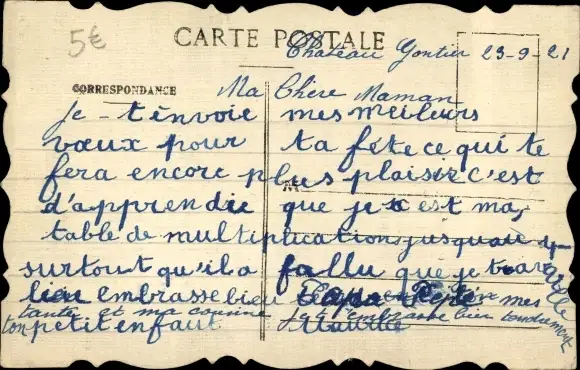 5€
CARTE POSTALE
Chateau Gontier 23-9-21
CORRESPONDANCE
Ma Chère Maman
je t'envoie mes meilleurs
vœux pour ta fête ce qui te
fera encore plus plaisir c'est
d'apprendre que je est ma
table de multiplication jusquau 4
surtout qu'il a fallu que je travaille
bien embrasse bien Papa Pépé mes
tante et ma cousine je t'embrasse bien tendrement
ton petit enfant